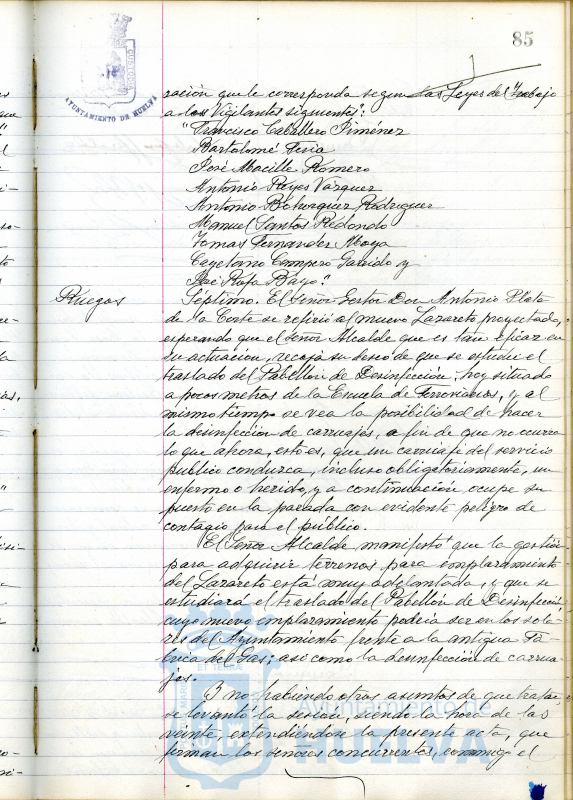 85
AYUNTAMIENTO DE HUELVA
ración que le corresponda segun las Leyes del Trabajo
a los Vigilantes siguientes":
"Francisco Caballero Jiménez
Bartolomé Feria
José Macille Romero
Antonio Reyes Vázquez
Antonio Bohorquez Rodriguez
Manuel Santos Redondo
Tomas Fernandez Moya
Cayetano Campero Garrido y
José Rofa Bayo."
Ruegos
Séptimo. El Señor Gestor Don Antonio Plata
de la Corte se refirió al nuevo Lazareto proyectado,
esperando que el Señor Alcalde que es tan eficaz en
su actuación, recoja su deseo de que se estudie el
traslado del Pabellón de Desinfección, hoy situado
a pocos metros de la Escuela de Ferroviarios, y al
mismo tiempo se vea la posibilidad de hacer
la desinfección de carruajes, a fin de que no ocurra
lo que ahora, esto es, que un carruaje del servicio
publico conduzca, incluso obligatoriamente, un
enfermo o herido, y a continuación ocupe su
puesto en la parada con evidente peligro de
contagio para el público.
El Señor Alcalde manifestó que la gestión
para adquirir terrenos para emplazamiento
del Lazareto está muy adelantada, y que se
estudiará el traslado del Pabellón de Desinfección
cuyo nuevo emplazamiento podria ser en los sola-
res del Ayuntamiento frente a la antigua Fá-
brica del Gas; asi como la desinfección de carrua-
jes.
Y no habiendo otros asuntos de que tratar,
se levantó la sesión, siendo la hora de las
veinte, extendiéndose la presente acta, que
firman los señores concurrentes, conmigo el
Ayuntamiento de
HUELVA